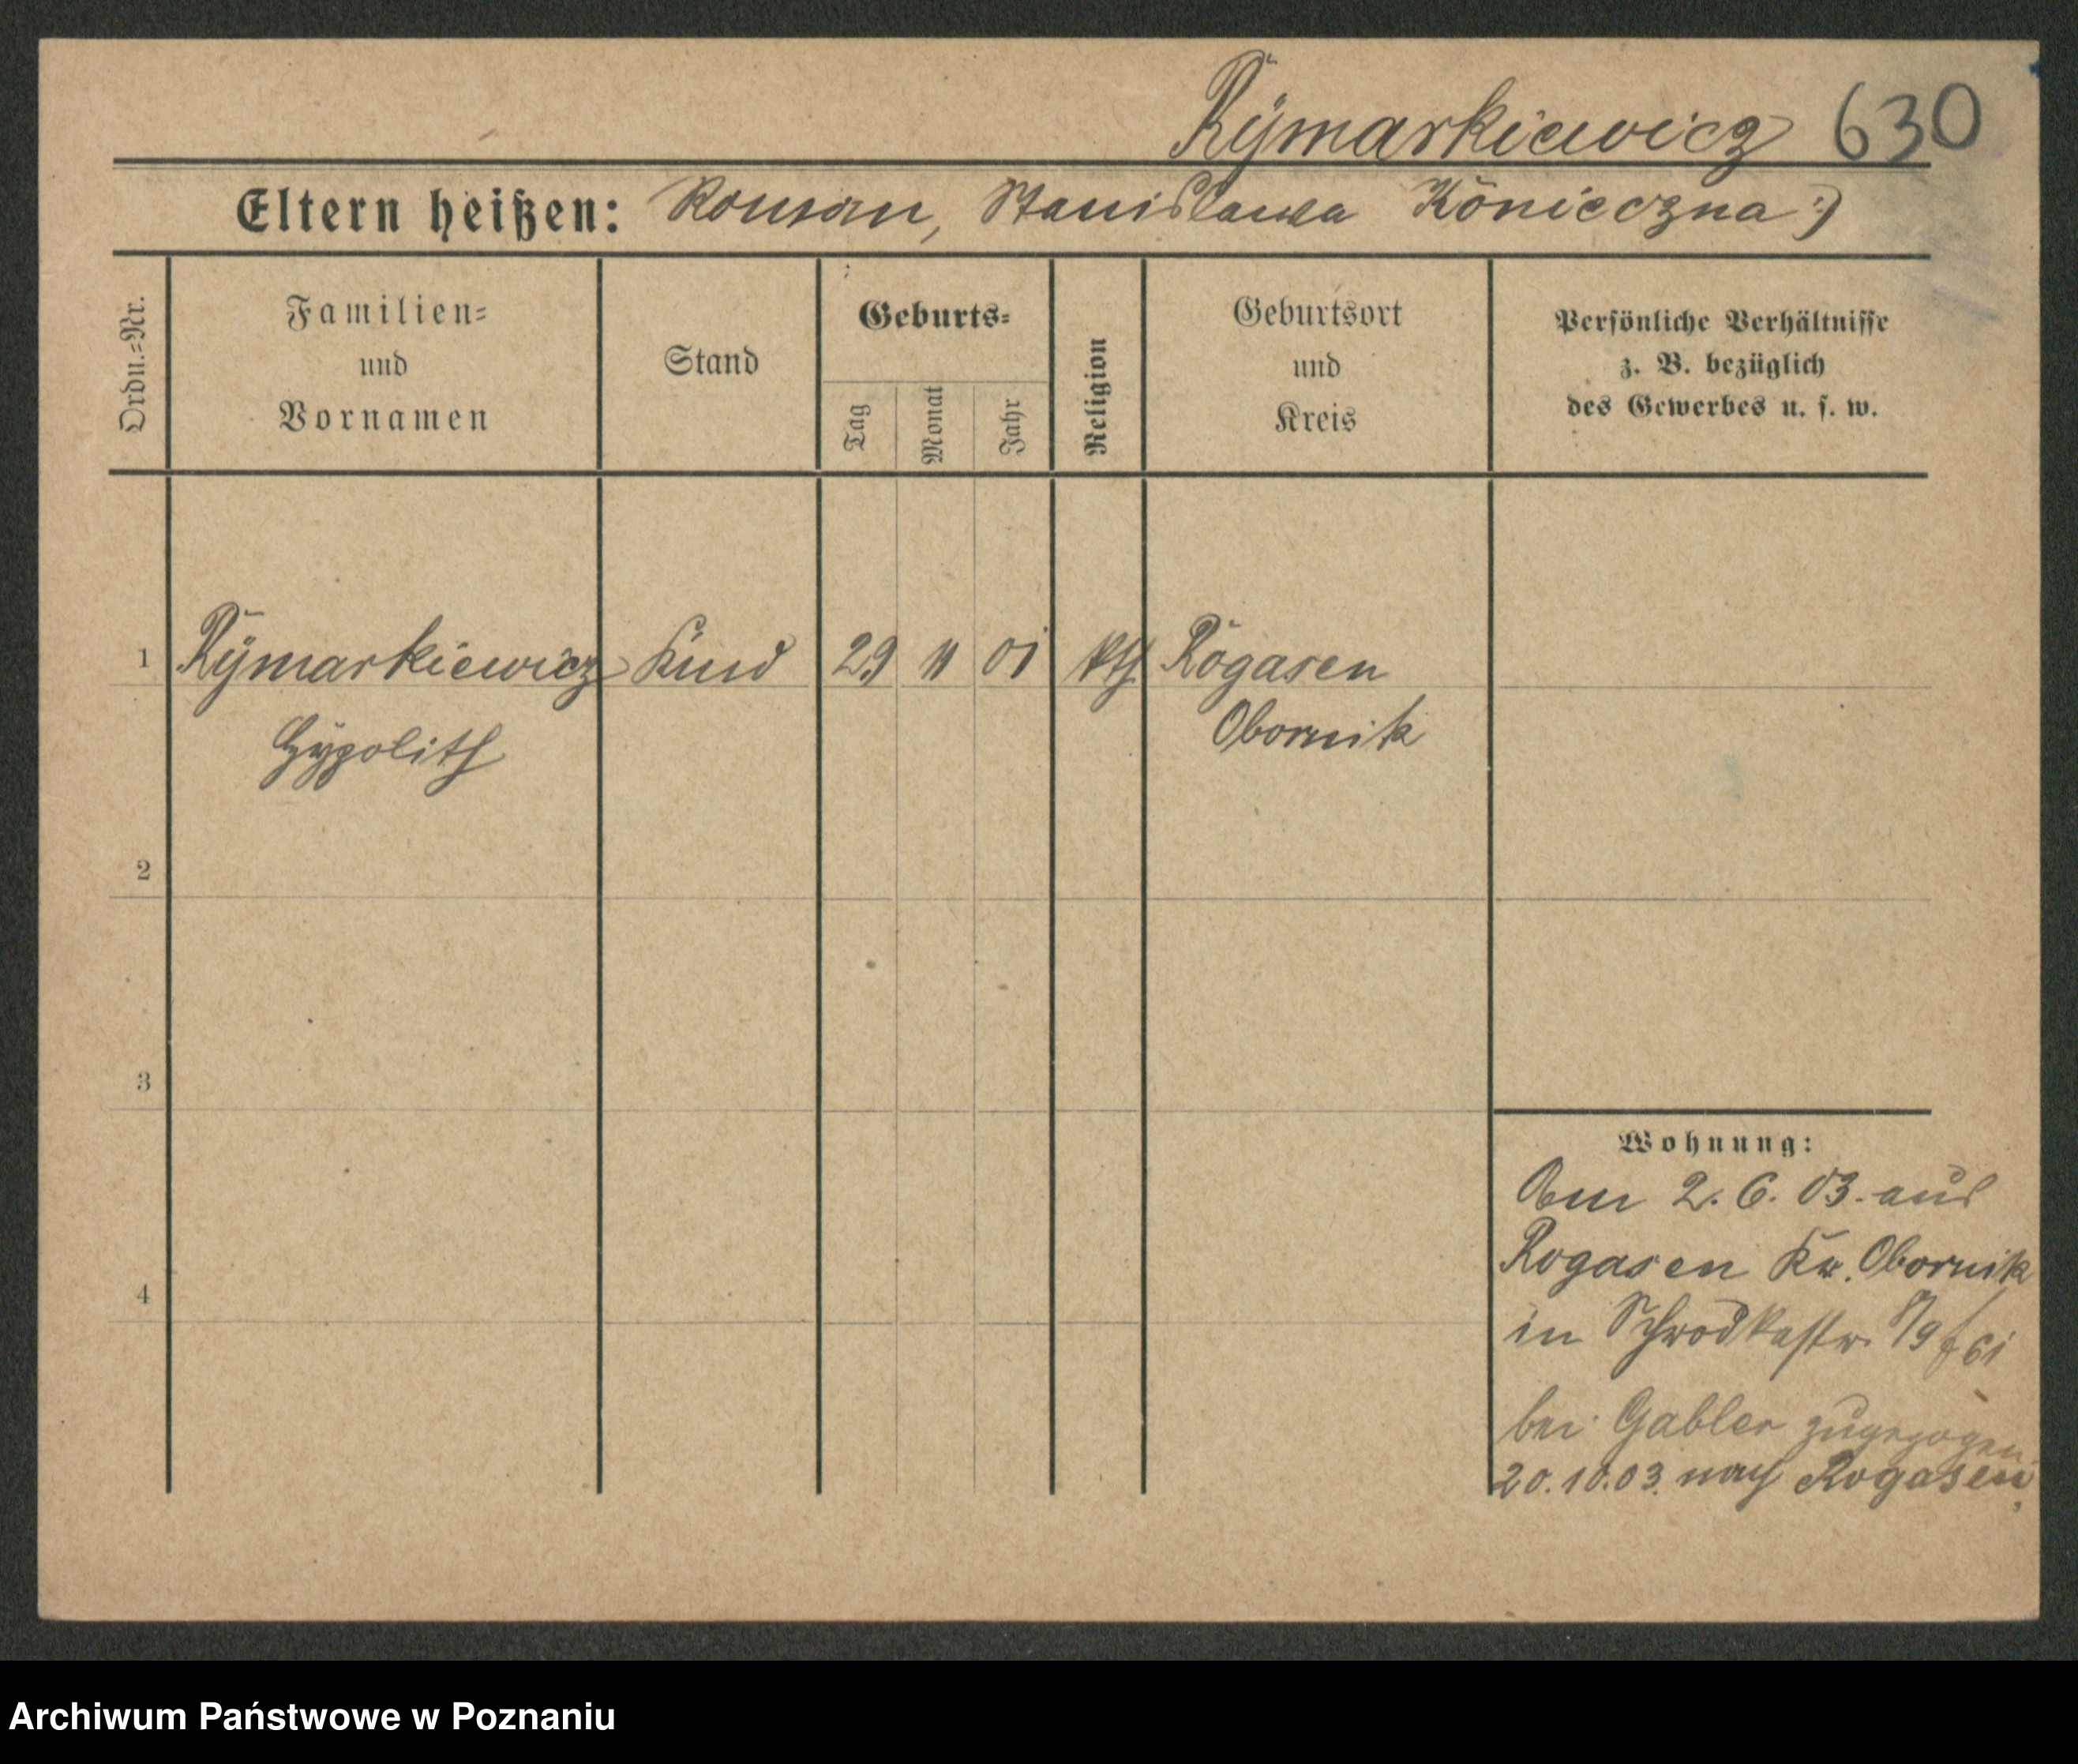 Rÿmarkiewicz 630
Eltern heißen: Roman, Stanislawa Konieczna :)
Ordn.=Nr.
Familien=
und
Vornamen
Stand
Geburts=
Tag
Monat
Jahr
Religion
Geburtsort
und
Kreis
Persönliche Verhältnisse
z. B. bezüglich
des Gewerbes u. s. w.
1 Rÿmarkiewicz Kind 29 11 01 kth. Rogasen
Hÿpolith Obornik
2
3
4
Wohnung:
Am 2. 6. 03. aus
Rogasen Kr. Obornik
in Schrodkastr.
bei Gabler zugezogen
20.10.03. nach Rogasen
Archiwum Państwowe w Poznaniu